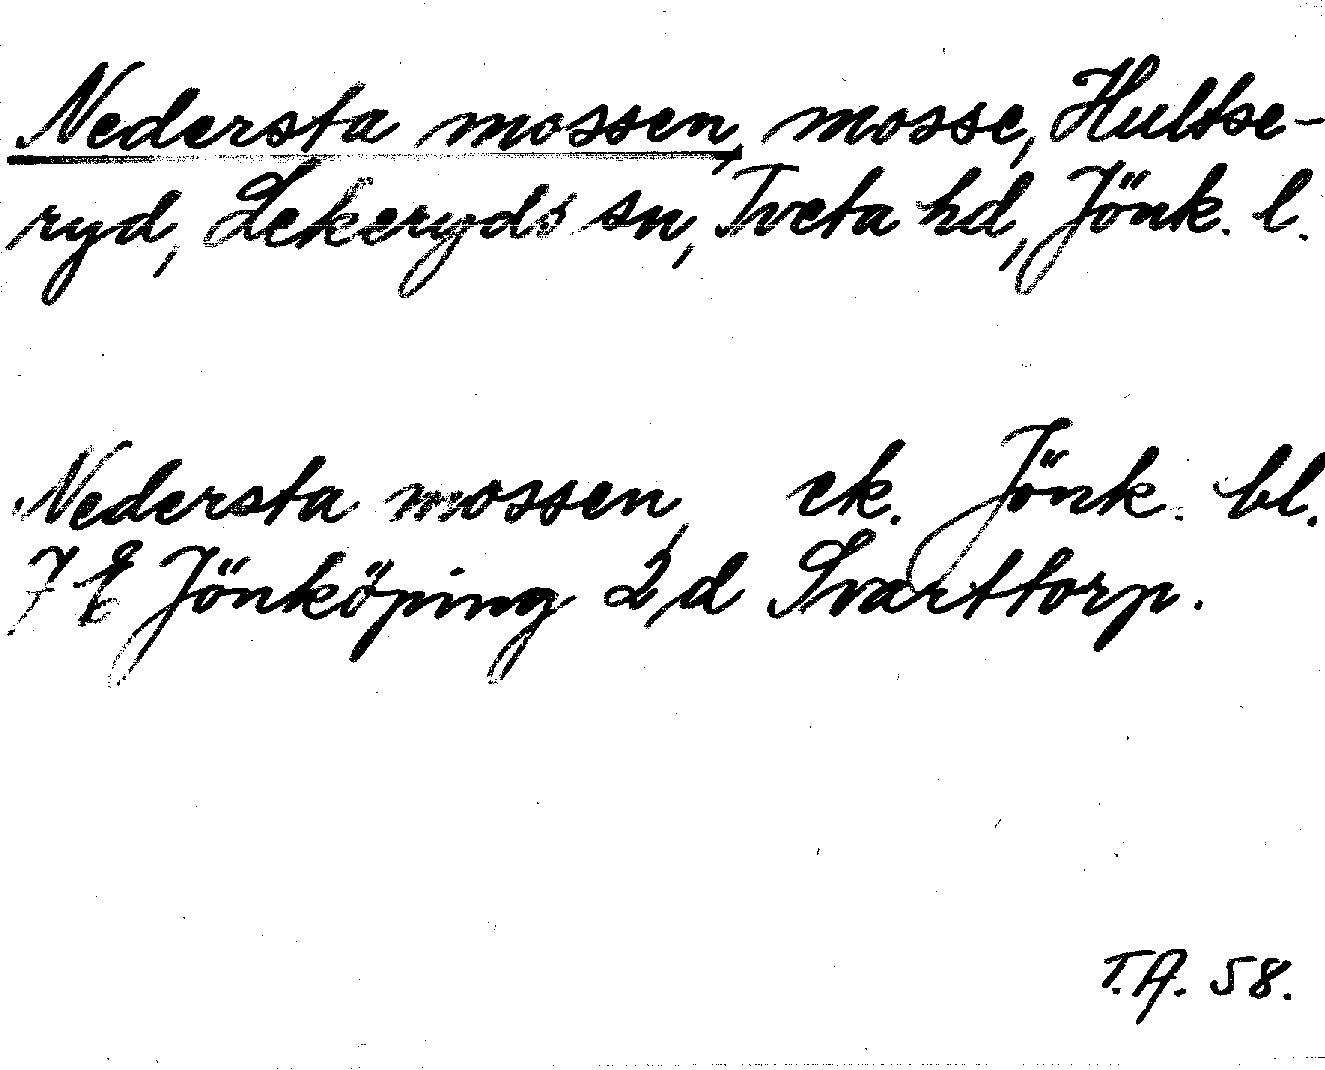 Nedersta mossen, mosse, Hultse-
ryd, Lekeryds sn, Tveta hd, Jönk. l.
Nedersta mossen, ek. Jönk. bl.
7 E Jönköping 2 d Svarttorp.
T.A. 58.